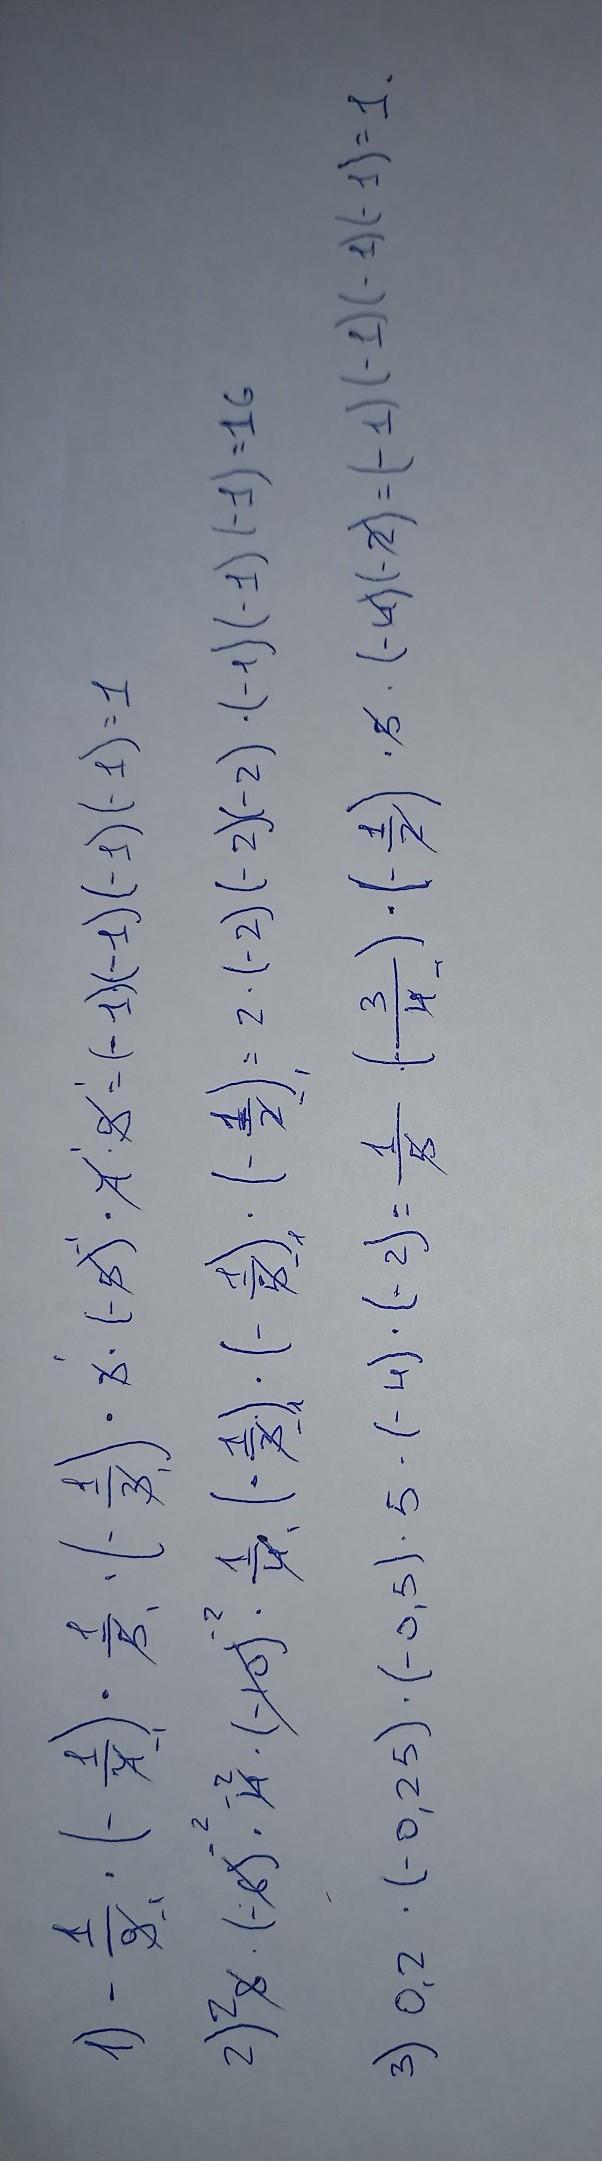 1) - 1/9 · (- 1/7) · 1/5 · (- 1/3) · 3 · (-5) · 7 · 9 = (-1)(-1)(-1)(-1) = 1
2) 8 · (-6) · 4 · (-10) · 1/4 (- 1/3) · (- 1/5) · (- 1/2) = 2 · (-2)(-2)(-2) · (-1)(-1)(-1) = 16
3) 0,2 · (-0,25) · (-0,5) · 5 · (-4) · (-2) = 1/5 (- 3/4) · (- 1/2) · 5 · (-4)(-2) = (-1)(-1)(-1)(-1) = 1.